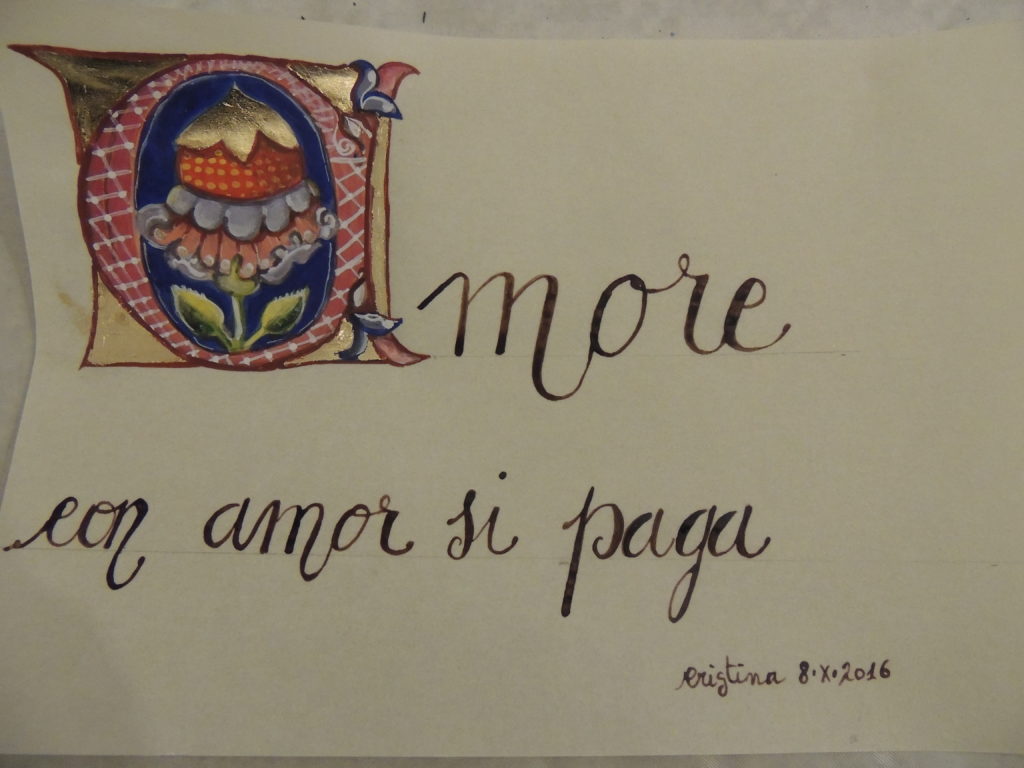 Amore
con amor si paga
cristina 8.X.2016